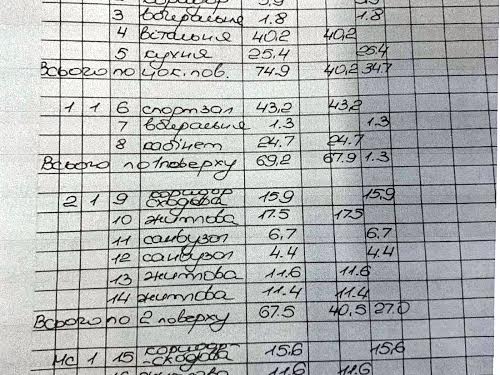 3 вбиральня 1.8 1.8
4 вітальня 40,2 40,2
5 кухня 25,4 25,4
Всього по цок.пов. 74.9 40,2 34.7
1 1 6 спортзал 43,2 43,2
7 вбиральня 1.3 1.3
8 кабінет 24.7 24.7
Всього по 1 поверху 69,2 67.9 1.3
2 1 9 коридор-сходова 15,9 15,9
10 житлова 17.5 17.5
11 санвузол 6,7 6,7
12 санвузол 4.4 4.4
13 житлова 11.6 11.6
14 житлова 11.4 11.4
Всього по 2 поверху 67.5 40,5 27.0
мс 1 15 коридор-сходова 15,6 15,6